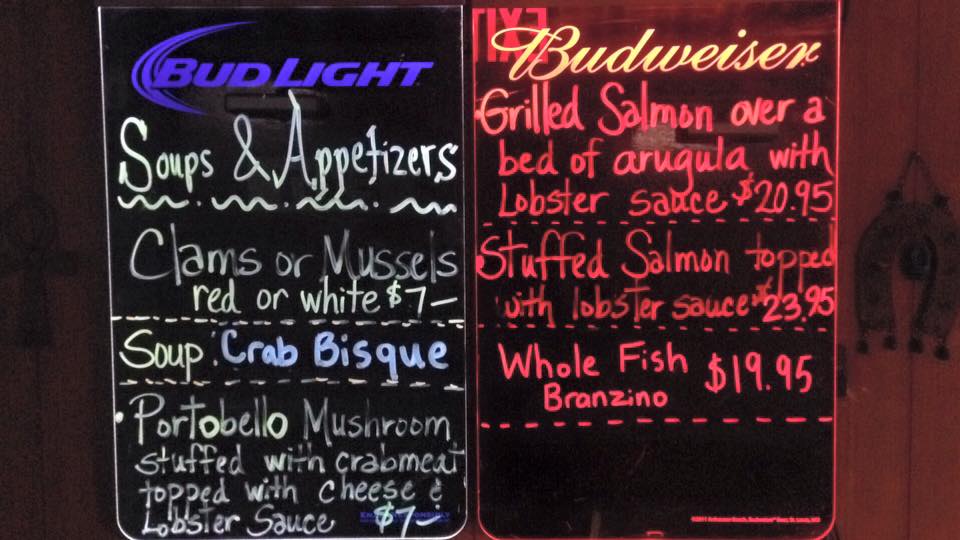 BUD LIGHT
Soups & Appetizers
Clams or Mussels
red or white $7—
Soup: Crab Bisque
• Portobello Mushroom
stuffed with crabmeat
topped with cheese &
Lobster Sauce $7—
EXIT
Budweiser
Grilled Salmon over a
bed of arugula with
Lobster sauce $20.95
Stuffed Salmon topped
with lobster sauce $23.95
Whole Fish $19.95
Branzino